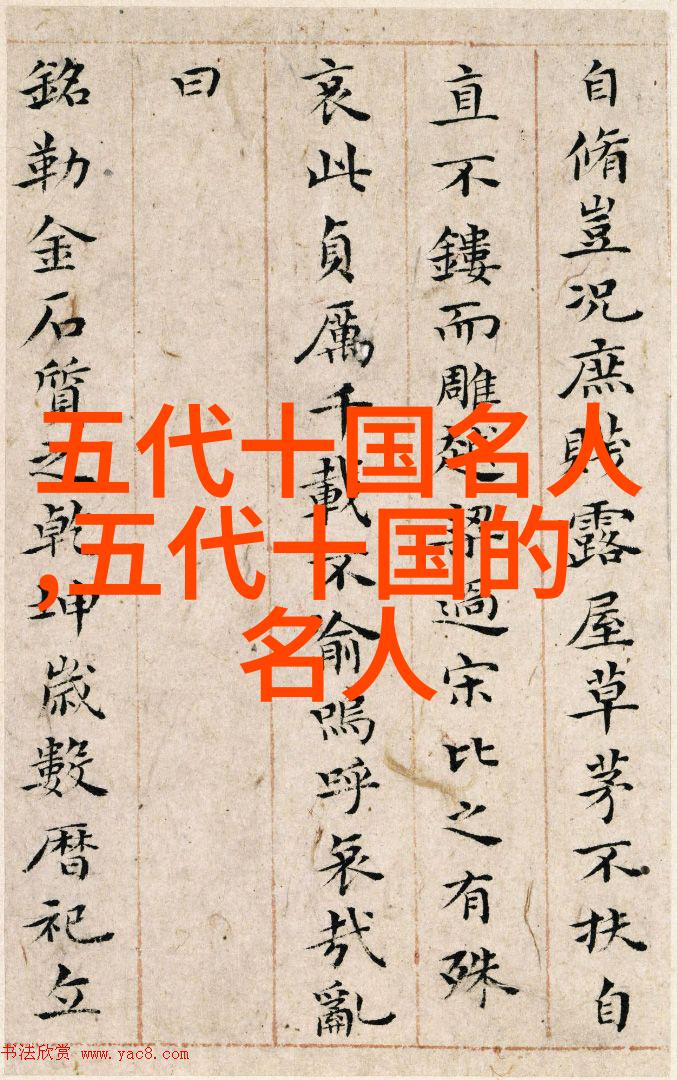 自脩豈况庶露屋草茅不扶自
直不鏤而雕過宋比之有殊
哀此貞厲千載不渝嗚呼哀哉亂
曰
銘勒金石質之乾坤嵗數曆祀立
五代十国名人
,五代十国的
名人
书法欣赏 www.yac8.com